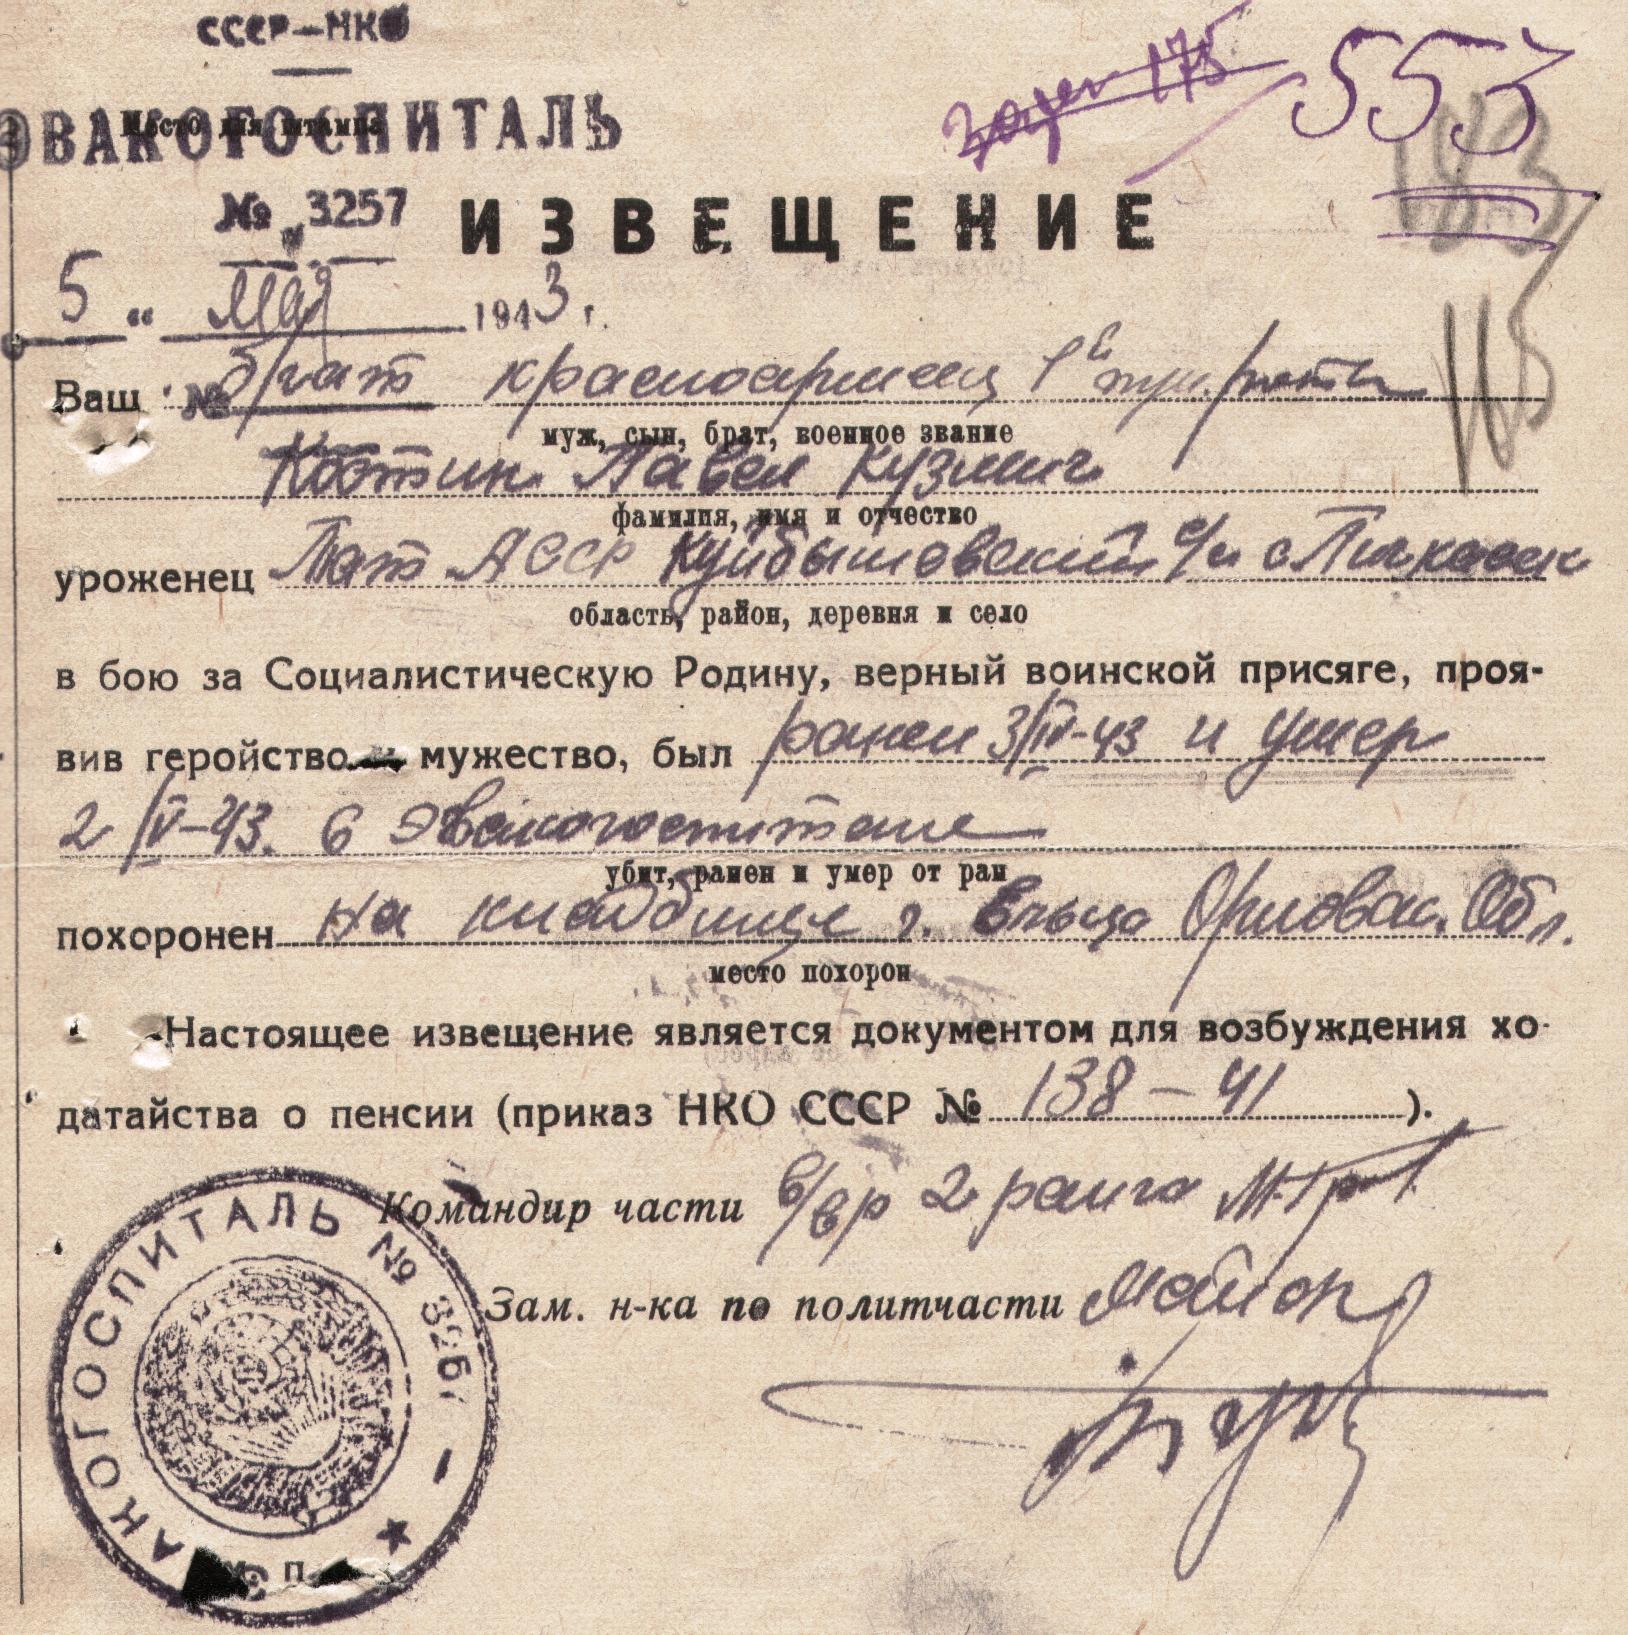 СССР—НКО
ЭВАКОГОСПИТАЛЬ
Место для штампа
№ 3257
175 553
193
ИЗВЕЩЕНИЕ
5 " Мая 1943 г.
Ваш № брат красноармеец 1й стр. роты
муж, сын, брат, военное звание
Костин Павел Кузмич
фамилия, имя и отчество
уроженец Тат АССР Куйбышевский с/м с
область, район, деревня и село
в бою за Социалистическую Родину, верный воинской присяге, проя-
вив геройство и мужество, был ранен 3/IV-43 и умер
2/IV-43. в Эвакогоспитале
убит, ранен и умер от ран
похоронен на кладбище г. Ельца Орловск. Обл.
место похорон
Настоящее извещение является документом для возбуждения хо-
датайства о пенсии (приказ НКО СССР № 138-41 ).
Командир части в/вр 2 ранга
Зам. н-ка по политчасти майор
ЭВАКОГОСПИТАЛЬ № 3257
М. П.